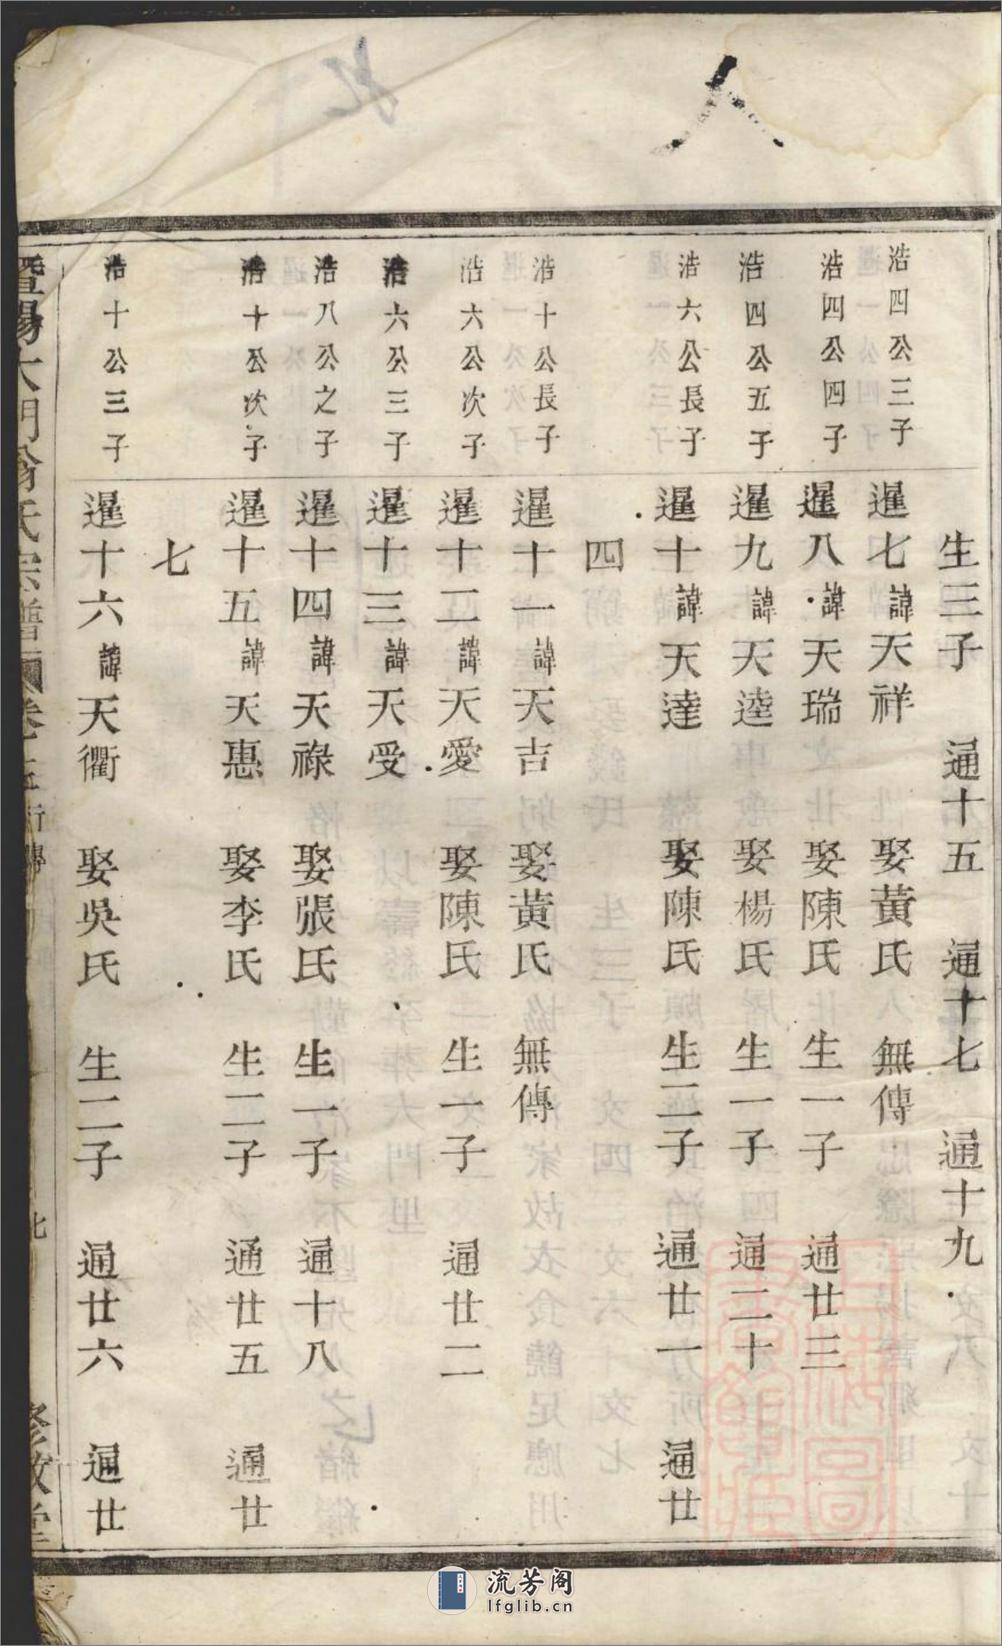 人
北
生三子 通十五 通十七 通十九
浩四公三子 暹七諱天祥 娶黃氏 無傳
浩四公四子 暹八諱天瑞 娶陳氏 生一子 通廿三
浩四公五子 暹九諱天逵 娶楊氏 生一子 通二十
浩六公長子 暹十諱天達 娶陳氏 生二子 通廿一 通廿
四
浩十公長子 暹十一諱天吉 娶黃氏 無傳
浩六公次子 暹十二諱天愛 娶陳氏 生一子 通廿二
浩六公三子 暹十三諱天受
浩八公之子 暹十四諱天祿 娶張氏 生一子 通十八
浩十公次子 暹十五諱天惠 娶李氏 生二子 通廿五 通廿
七
浩十公三子 暹十六諱天衢 娶吳氏 生二子 通廿六 通廿
暨陽大門 氏宗譜 卷 行傳 北 敘堂
流芳阁
lfglib.cn